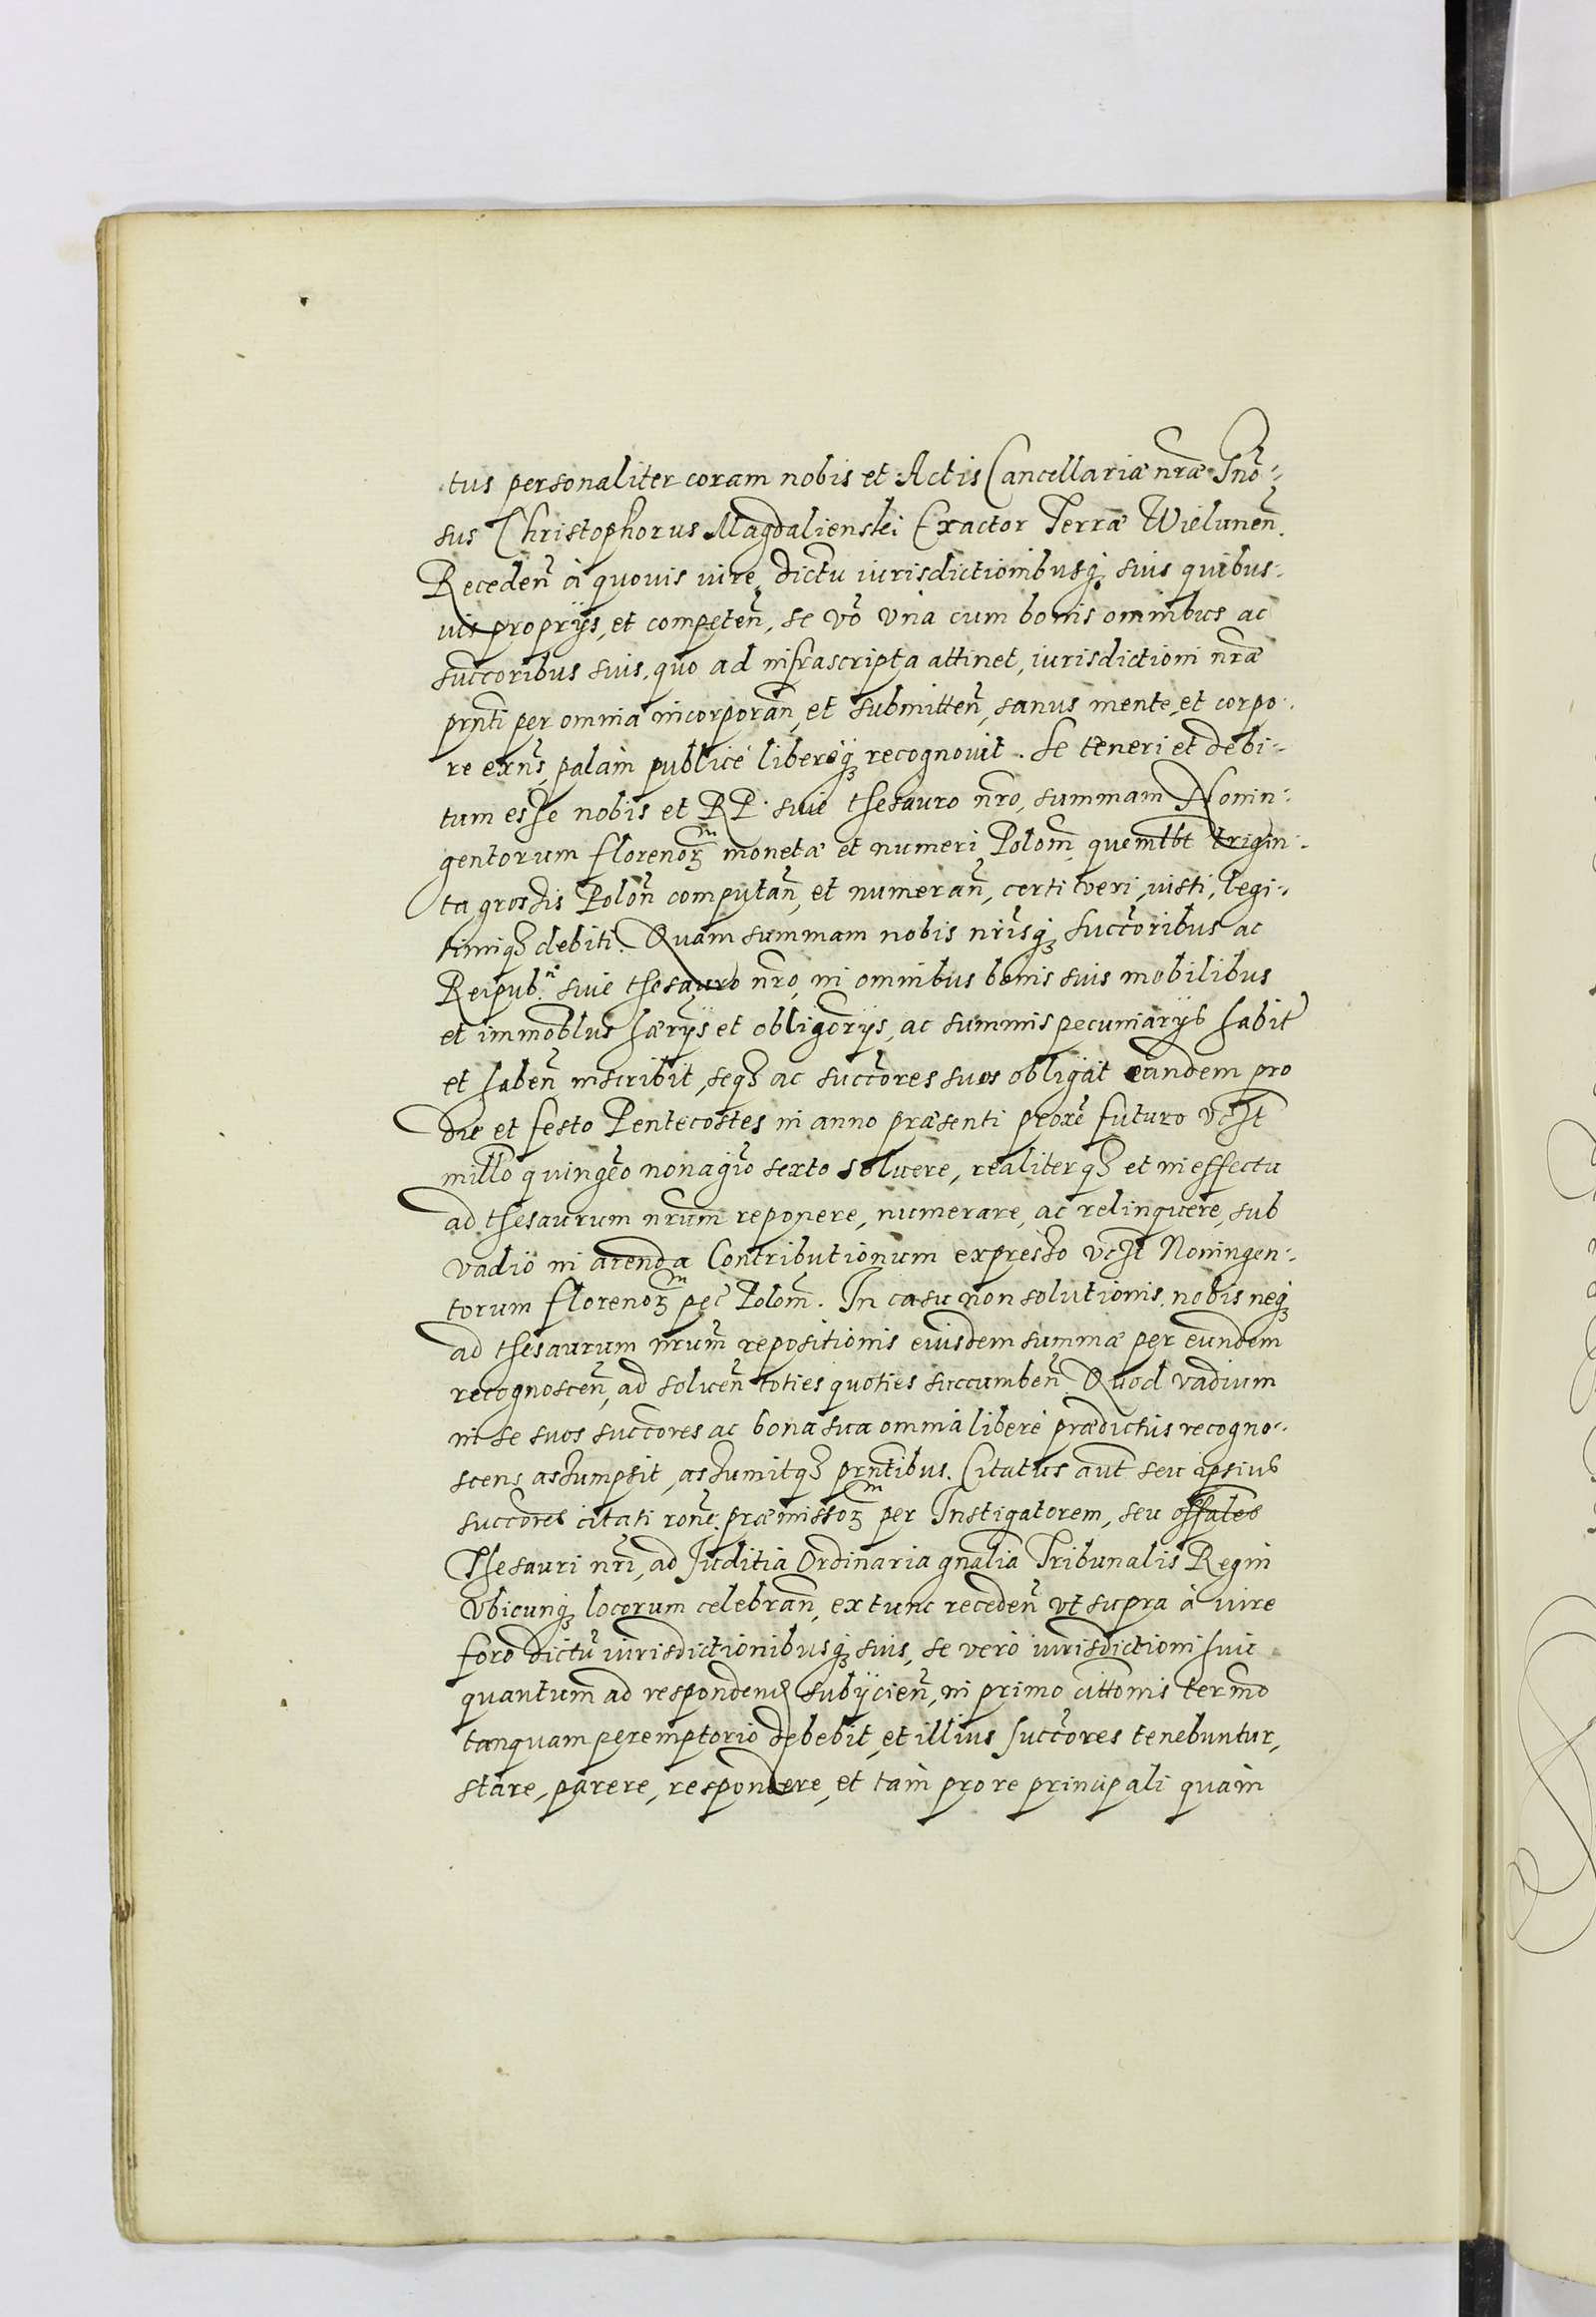 tus personaliter coram nobis et Actis Cancellariæ nræ Gno-
sus Christophorus Magdalienski Exactor Terræ Wielunen.
Receden à quovis iure, dictu iurisdictionibusq suis quibus-
vis proprijs, et competen, se vo vna cum bonis omnibus ac
succoribus suis, quo ad infrascripta attinet, iurisdictioni nræ
prnti per omnia incorporan, et submitten, sanus mente, et corpo-
re exns, palam publicè liberèq recognovit. Se teneri et debi-
tum esse nobis et RP. siue thesauro nro, summam Nonin-
gentorum florenorum monetæ et numeri Polom, quemlbt trigin-
ta grossis Polon computan, et numeran, certi, veri, iusti, legi-
timiq debiti. Quam summam nobis nrisq succoribus ac
Reipub. siue thesauro nro, in omnibus bonis suis mobilibus
et immoblus hærijs et obligorijs, ac summis pecuniarijs habit
et haben inscribit, seq ac succores suos obligat eandem pro
die et festo Pentecostes in anno præsenti proxe futuro vcst
millo quingeo nonagio sexto soluere, realiterq et in effectu
ad thesaurum nrum reponere, numerare, ac relinquere, sub
vadio in arenda Contributionum expresso vcst Noningen-
torum florenorum pec Polom. In casu non solutionis nobis neq
ad thesaurum nrum repositionis eiusdem summæ per eundem
recognoscen, ad soluen toties quoties succumben. Quod vadium
in se suos succores ac bona sua omnia liberè prædictus recogno-
scens assumpsit, assumitq prntibus. Citatus aut seu ipsius
succores citati rone præmissorum per Instigatorem, seu offales
Thesauri nri, ad Juditia Ordinaria gnalia Tribunalis Regni
vbicunq locorum celebran, ex tunc receden vt supra à iure
foro dictu iurisdictionibusq suis, se verò iurisdictioni huic
quantum ad responden subijcien, in primo cittonis termo
tanquam peremptorio debebit, et illius succores tenebuntur,
stare, parere, respondere, et tam pro re principali quam